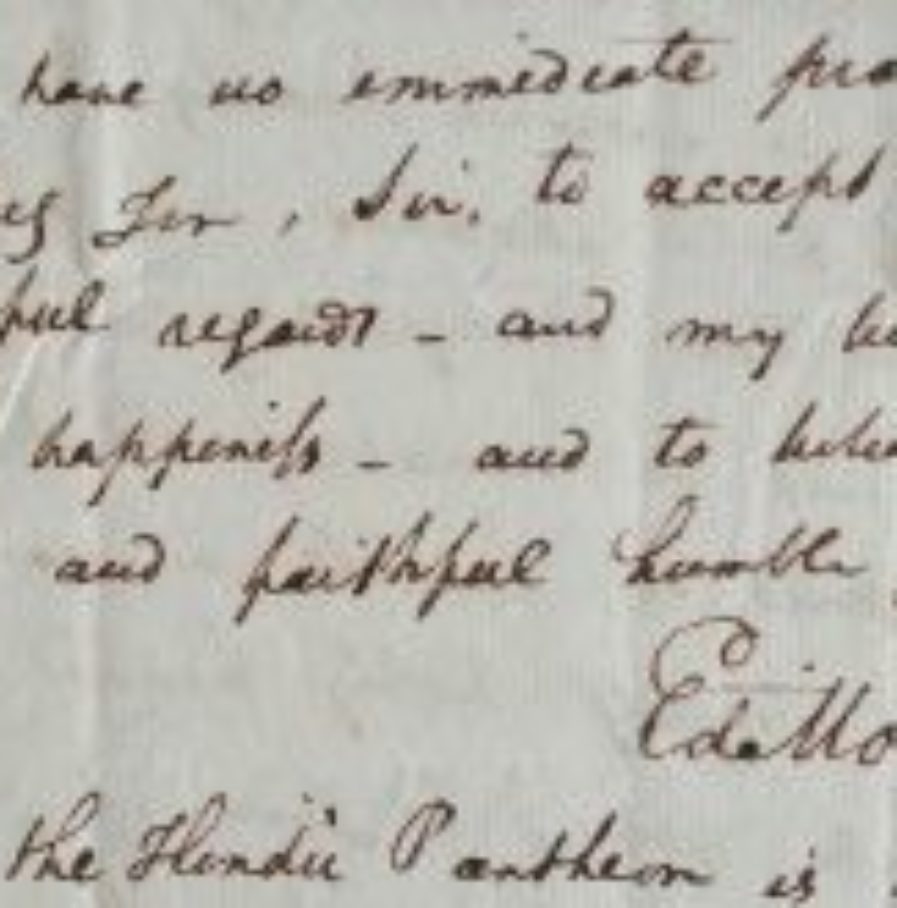 have no immediate
, Sir, to accept
regards - and my
happiness - and to
and faithful humble
Ed. Mo
the Hindu Pantheon is